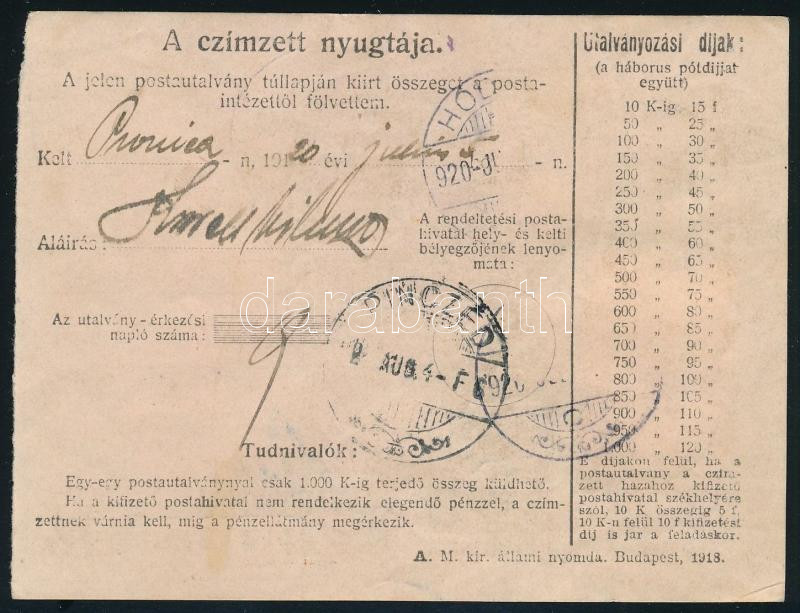 A czímzett nyugtája.
A jelen postautalvány túllapján kiirt összeget a posta-
intézettöl fölvettem.
Kelt Pronica - n, 19120 évi - n.
Aláirás:
A rendeltetési posta-
hivatal hely- és kelti
bélyegzőjének lenyo-
mata:
HOD
920 JU
Az utalvány - érkezési
napló száma:
9
PINCZÉD
AUG. 4
920
Tudnivalók:
Egy-egy postautalványnyal csak 1.000 K-ig terjedő összeg küldhető.
Ha a kifizető postahivatal nem rendelkezik elegendő pénzzel, a czím-
zettnek várnia kell, mig a pénzellátmány megérkezik.
Utalványozási dijak:
(a háborus pótdijjat
együtt)
10 K-ig 15 f.
50 „ 25 „
100 „ 30 „
150 „ 35 „
200 „ 40 „
250 „ 45 „
300 „ 50 „
35f „ 55 „
400 „ 60 „
450 „ 65 „
500 „ 70 „
550 „ 75 „
600 „ 80 „
650 „ 85 „
700 „ 90 „
750 „ 95 „
800 „ 100 „
850 „ 105 „
900 „ 110 „
950 „ 115 „
1.000 „ 120 „
E dijakon felül, ha a
postautalvány a czím-
zett házahoz kifizető
postahivatal székhelyére
szól, 10 K összegig 5 f,
10 K-n felül 10 f kifizetést
dij is jar a feladáskor.
A. M. kir. állami nyomda. Budapest, 1918.
darabanth.com